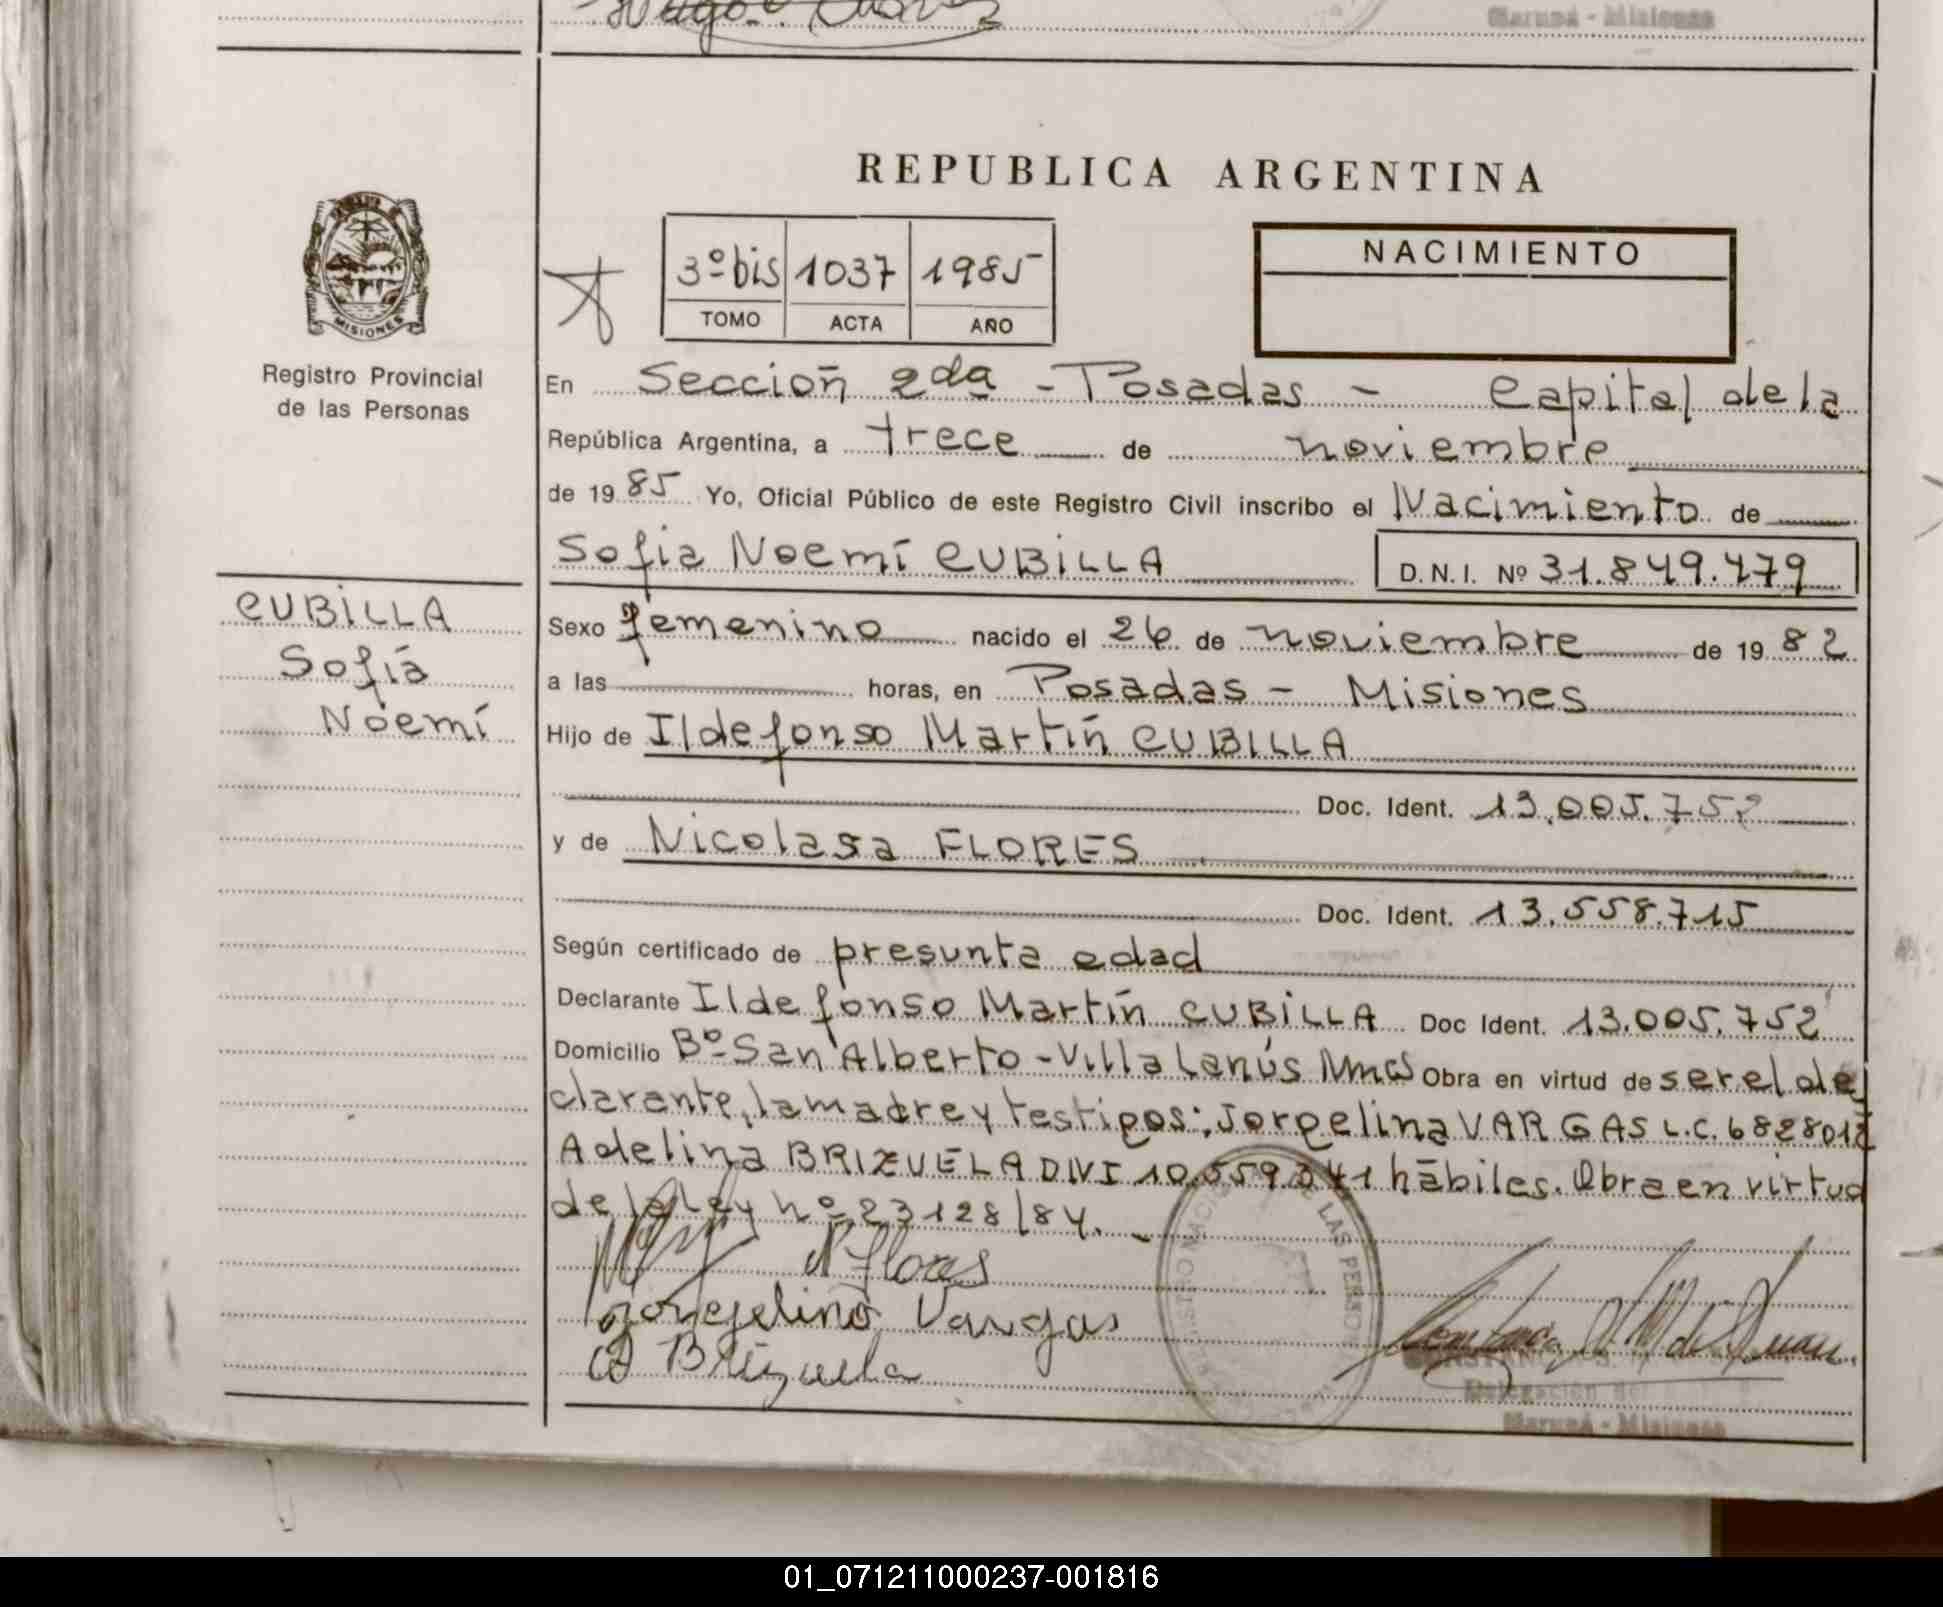 Hugo
Marupá - Misiones
REPUBLICA ARGENTINA
MISIONES
Registro Provincial
de las Personas
3º bis 1037 1985
TOMO ACTA AÑO
NACIMIENTO
En Sección 2da - Posadas - Capital de la
República Argentina, a trece de noviembre
de 19 85 Yo, Oficial Público de este Registro Civil inscribo el Nacimiento de
Sofia Noemí CUBILLA D.N.I. Nº 31.849.479
CUBILLA
Sofía
Noemí
Sexo femenino nacido el 26 de noviembre de 19 82
a las horas, en Posadas - Misiones
Hijo de Ildefonso Martín CUBILLA
Doc. Ident. 13.005.752
y de Nicolasa FLORES
Doc. Ident. 13.558.715
Según certificado de presunta edad
Declarante Ildefonso Martín CUBILLA Doc Ident. 13.005.752
Domicilio Bº San Alberto - Villa Lanús Mnes Obra en virtud de ser el de
clarante, la madre y testigos: Jorgelina VARGAS L.C. 6828012
Adelina BRIZUELA DNI 10.559.341 hábiles. Obra en virtud
de la ley nº 23128/84.
N Flores
Jorgelina Vargas
A Brizuela
LAS PERSO
Delegación
Misiones
01_071211000237-001816